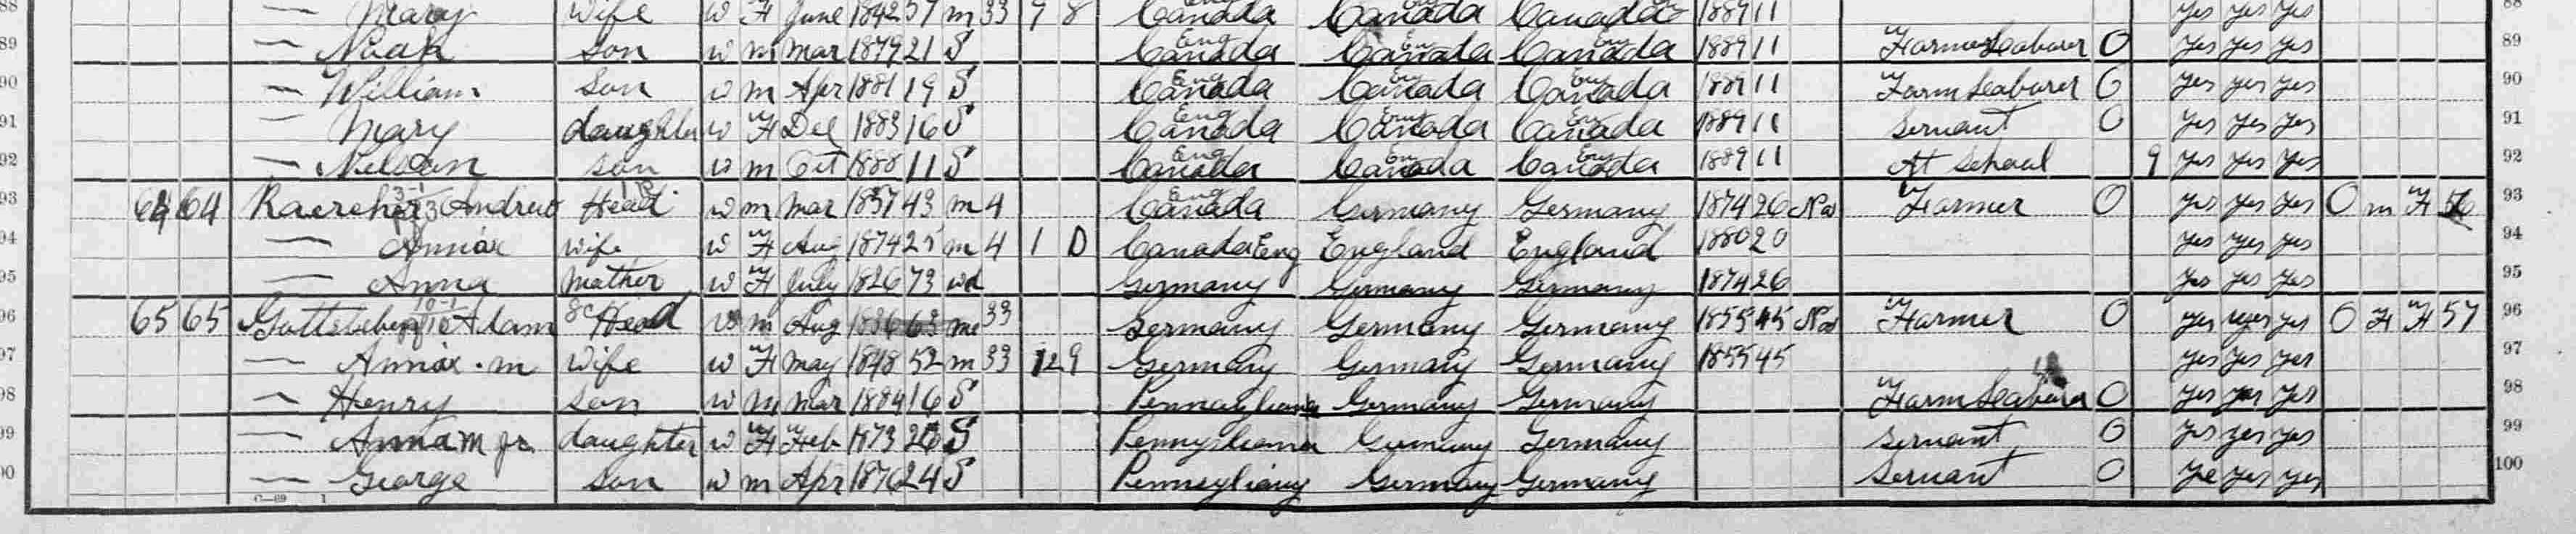 88 — Mary wife w F June 1842 57 m 33 9 8 Canada Eng Canada Canada 1889 11 yes yes yes 88
89 — son w m mar 1879 21 S Canada Eng Canada Eng Canada Eng 1889 11 Farm Labarer 0 yes yes yes 89
90 — William son w m Apr 1881 19 S Canada Eng Canada Eng Canada Eng 1889 11 Farm Labarer 0 yes yes yes 90
91 — Mary daughter w F Dec 1883 16 S Canada Eng Canada Eng Canada Eng 1889 11 Servant 0 yes yes yes 91
92 — Nelson son w m Oct 1888 11 S Canada Eng Canada Eng Canada Eng 1889 11 At School 9 yes yes yes 92
93 64 64 Andrew Head w m mar 1857 43 m 4 Canada Eng Germany Germany 1874 26 Na Farmer 0 yes yes yes O m F 56 93
94 — wife w F Aug 1874 25 m 4 1 0 Canada Eng England England 1880 20 yes yes yes 94
95 — Anna mother w F July 1826 73 wd Germany Germany Germany 1874 26 yes yes yes 95
96 65 65 Adam Head w m Aug 1836 63 m 33 Germany Germany Germany 1855 45 Na Farmer 0 yes yes yes O F F 57 96
97 — m wife w F may 1848 52 m 33 12 9 Germany Germany Germany 1855 45 yes yes yes 97
98 — Henry son w m mar 1884 16 S Germany Germany Farm Labarer 0 yes yes yes 98
99 — Anna M jr daughter w F Feb 1873 26 S Germany Germany servant 0 yes yes yes 99
100 — George son w m Apr 1876 24 S Germany Germany Servant 0 ye yes yes 100